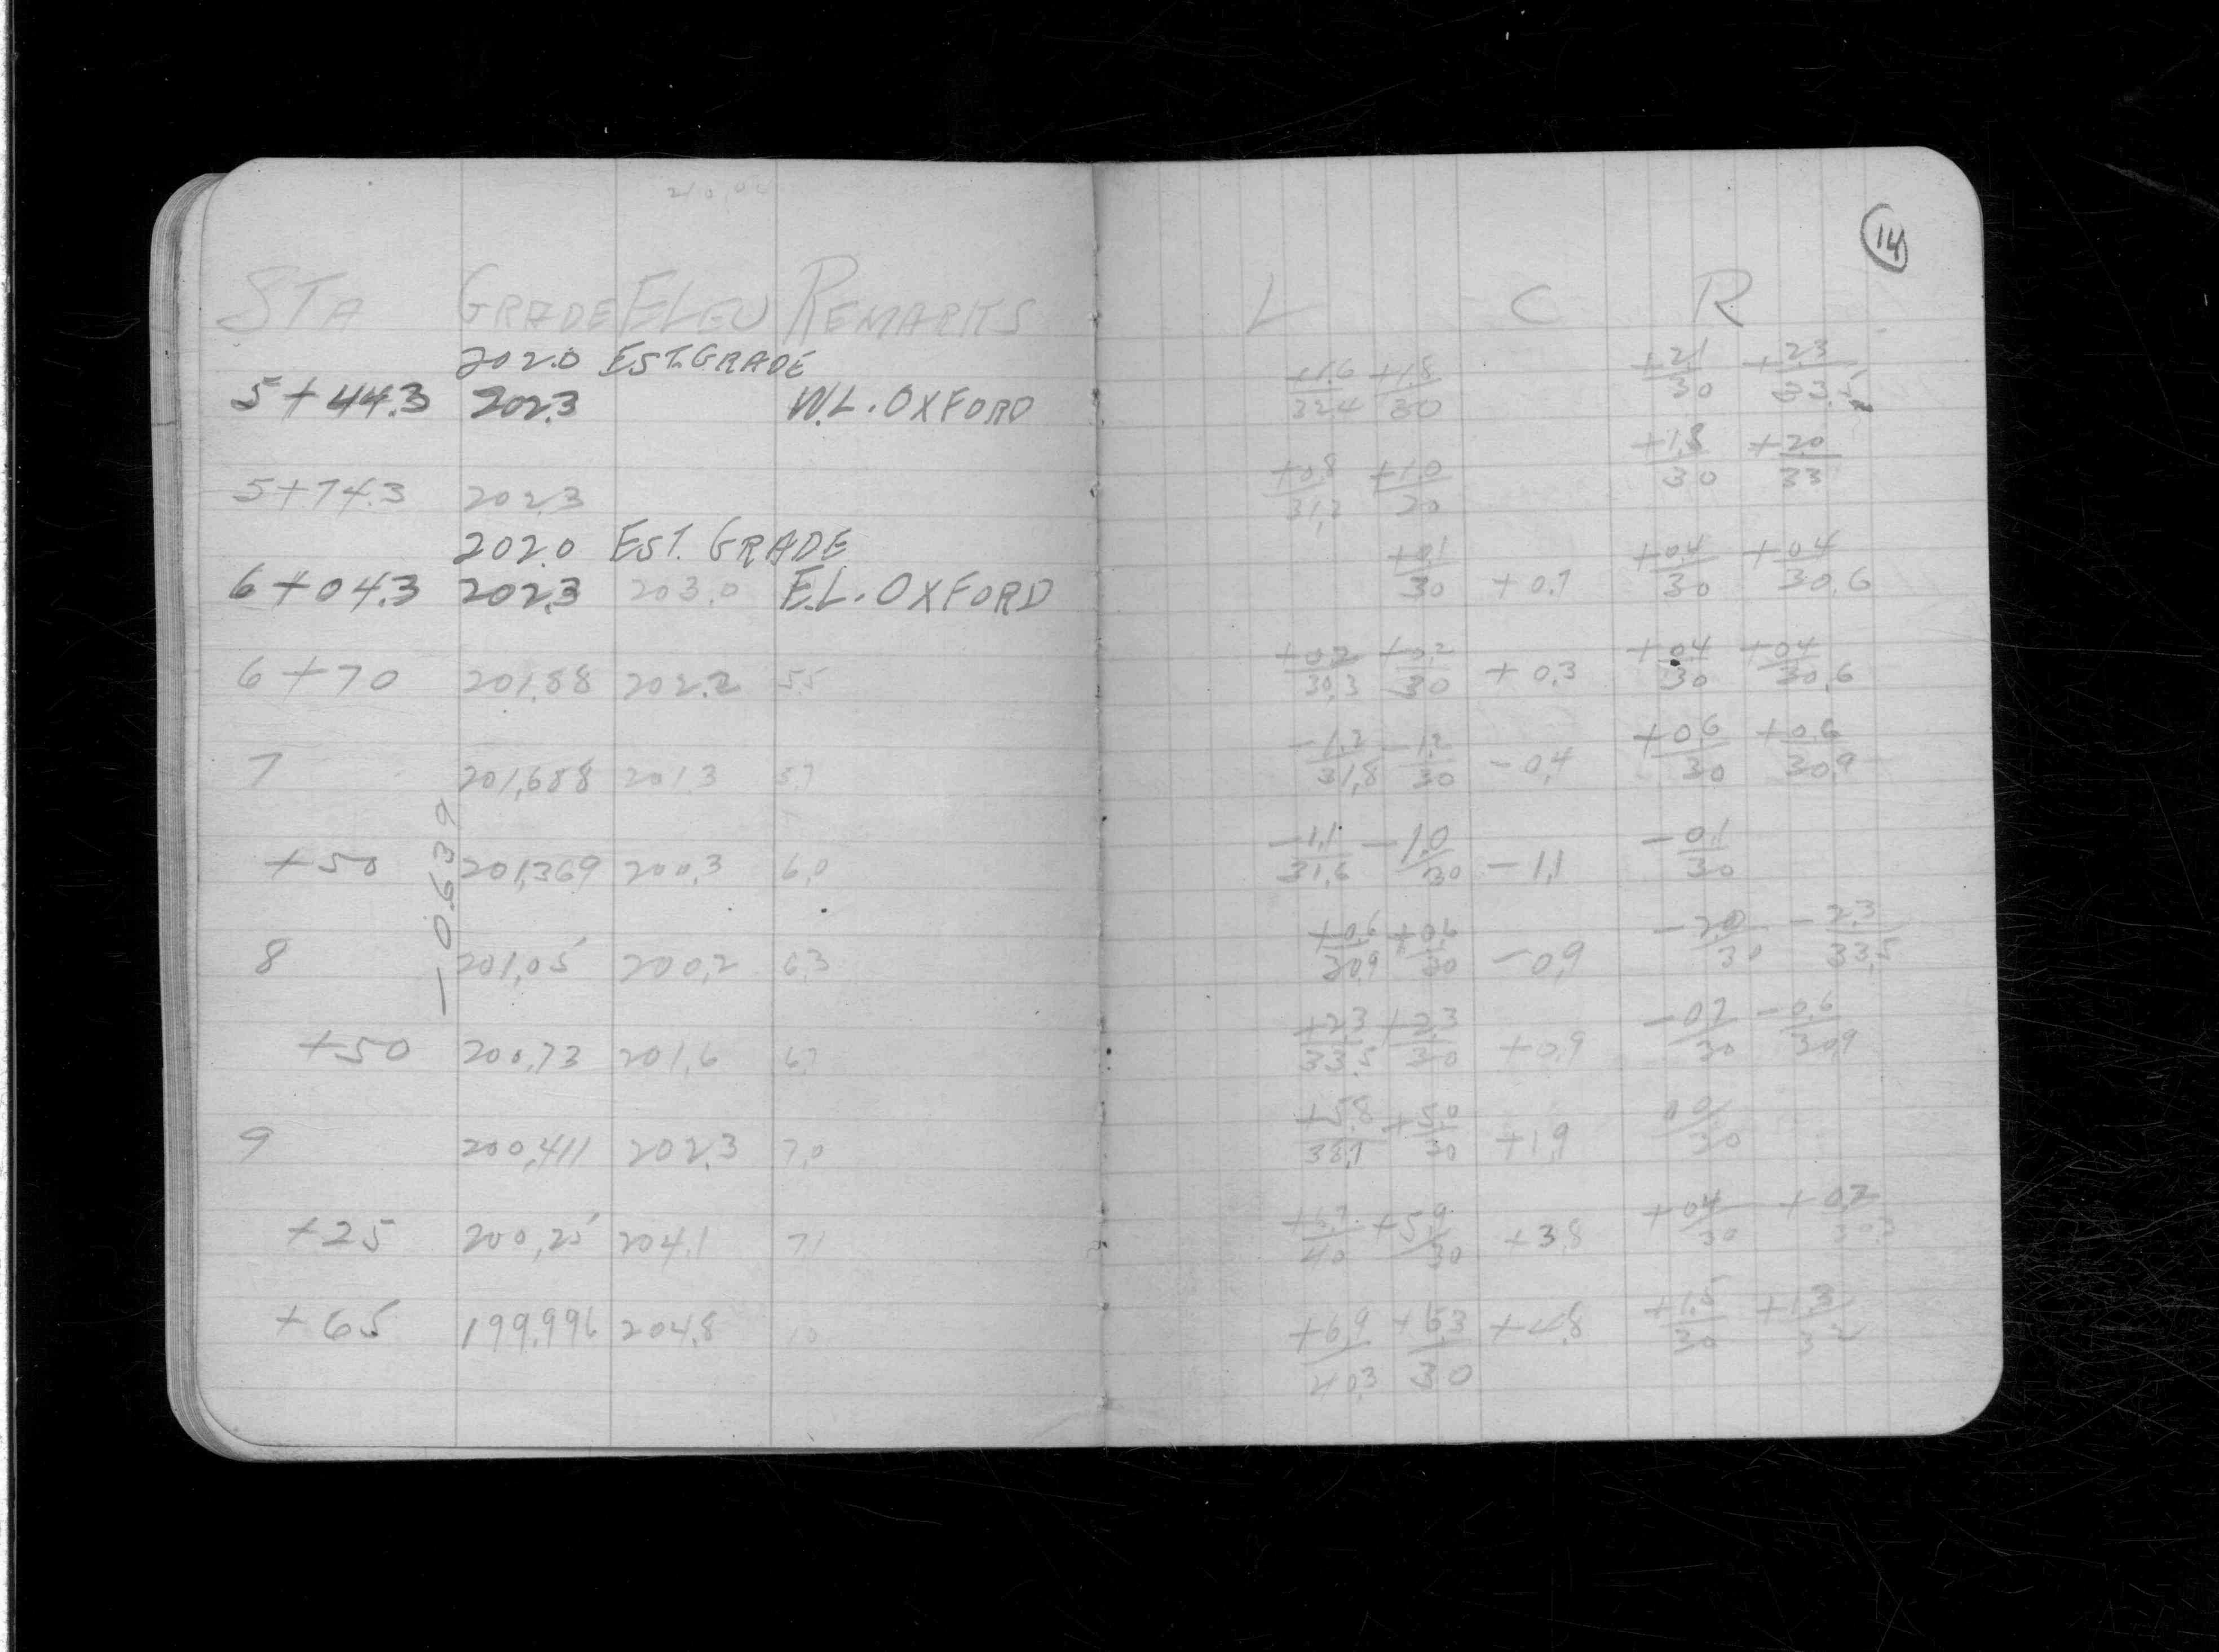 14
STA GRADE ELEV REMARKS L C R
202.0 EST. GRADE
5+44.3 202.3 W.L. OXFORD +1.6/32.4 +1.8/30 +2.1/30 +2.3/33.5
5+74.3 202.3 +0.8/31.2 +1.0/30 +1.8/30 +2.0/33
202.0 EST. GRADE
6+04.3 202.3 203.0 E.L. OXFORD +0.1/30 +0.7 +0.4/30 +0.4/30.6
6+70 201.88 202.2 5.5 +0.2/30.3 +0.2/30 +0.3 +0.4/30 +0.4/30.6
7 201.688 201.3 5.7 -1.2/31.8 -1.2/30 -0.4 +0.6/30 +0.6/30.9
+50 201.369 200.3 6.0 -1.1/31.6 -1.0/30 -1.1 -0.1/30
-0.639
8 201.05 200.2 6.3 +0.6/30.9 +0.6/30 -0.9 -2.0/30 -2.3/33.5
+50 200.73 201.6 6.7 +2.3/33.5 +2.3/30 +0.9 -0.7/30 -0.6/30.9
9 200.411 202.3 7.0 +5.8/38.7 +5.0/30 +1.9 0.0/30
+25 200.25 204.1 7.1 40 +5.9/30 +3.8 +0.4/30 +0.2/30.3
+65 199.996 204.8 +6.9/40.3 +6.3/30 +4.8 +1.5/30 +1.3/32